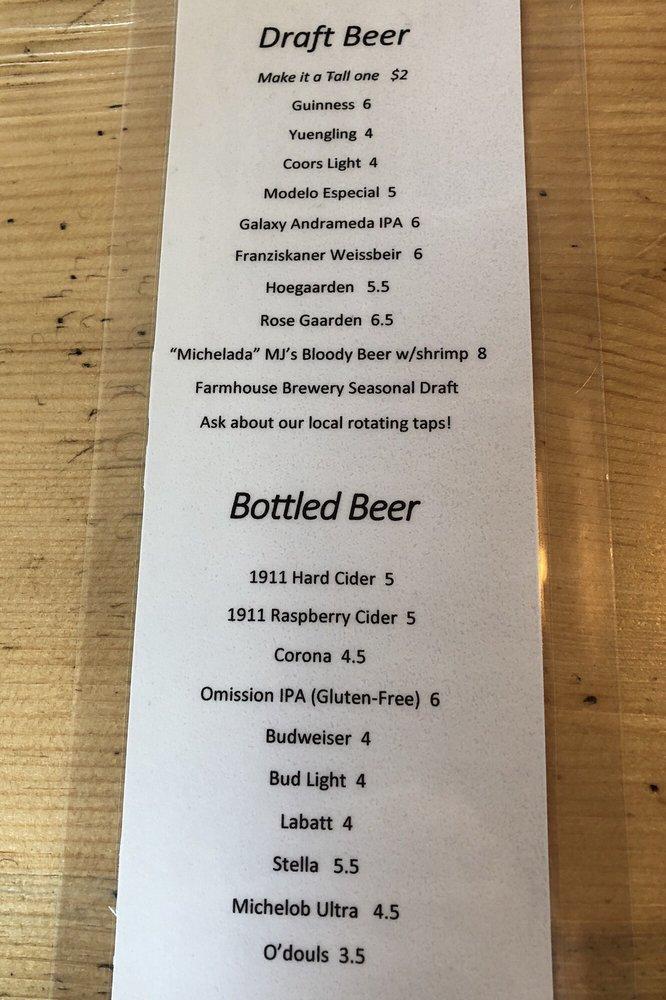 Draft Beer
Make it a Tall one $2
Guinness 6
Yuengling 4
Coors Light 4
Modelo Especial 5
Galaxy Andrameda IPA 6
Franziskaner Weissbeir 6
Hoegaarden 5.5
Rose Gaarden 6.5
“Michelada” MJ’s Bloody Beer w/shrimp 8
Farmhouse Brewery Seasonal Draft
Ask about our local rotating taps!
Bottled Beer
1911 Hard Cider 5
1911 Raspberry Cider 5
Corona 4.5
Omission IPA (Gluten-Free) 6
Budweiser 4
Bud Light 4
Labatt 4
Stella 5.5
Michelob Ultra 4.5
O’douls 3.5